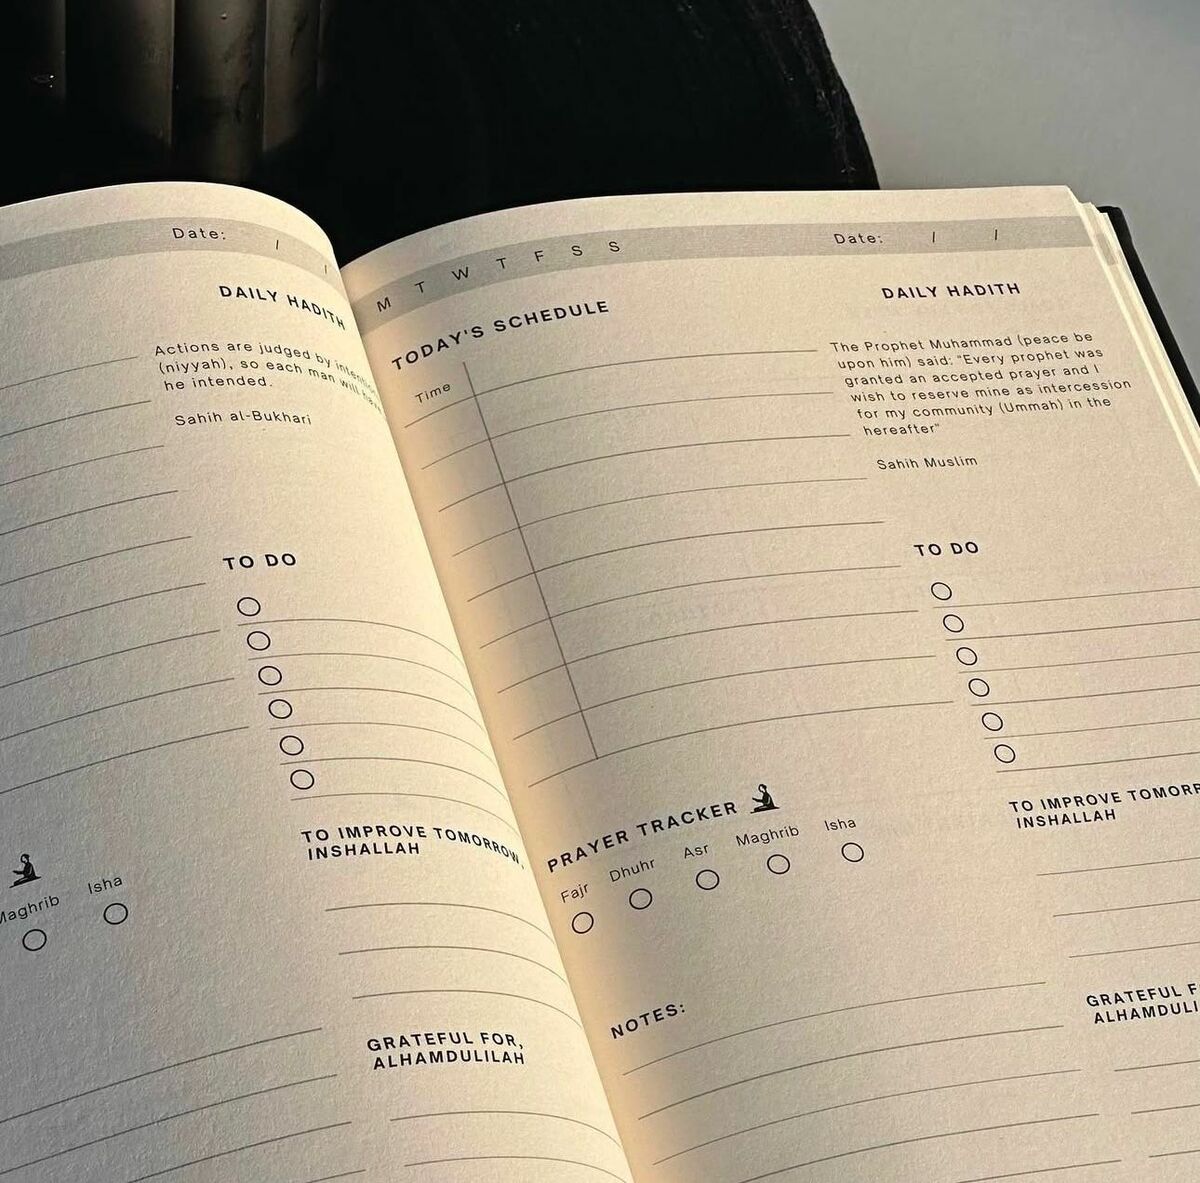 Date: / /
DAILY HADITH
Actions are judged by
(niyyah), so each man will have
he intended.
Sahih al-Bukhari
TO DO
TO IMPROVE TOMORROW,
INSHALLAH
Maghrib Isha
GRATEFUL FOR,
ALHAMDULILAH
M T W T F S S
Date: / /
TODAY'S SCHEDULE
Time
DAILY HADITH
The Prophet Muhammad (peace be
upon him) said: "Every prophet was
granted an accepted prayer and I
wish to reserve mine as intercession
for my community (Ummah) in the
hereafter"
Sahih Muslim
TO DO
PRAYER TRACKER
Fajr Dhuhr Asr Maghrib Isha
TO IMPROVE
INSHALLAH
NOTES:
GRATEFUL